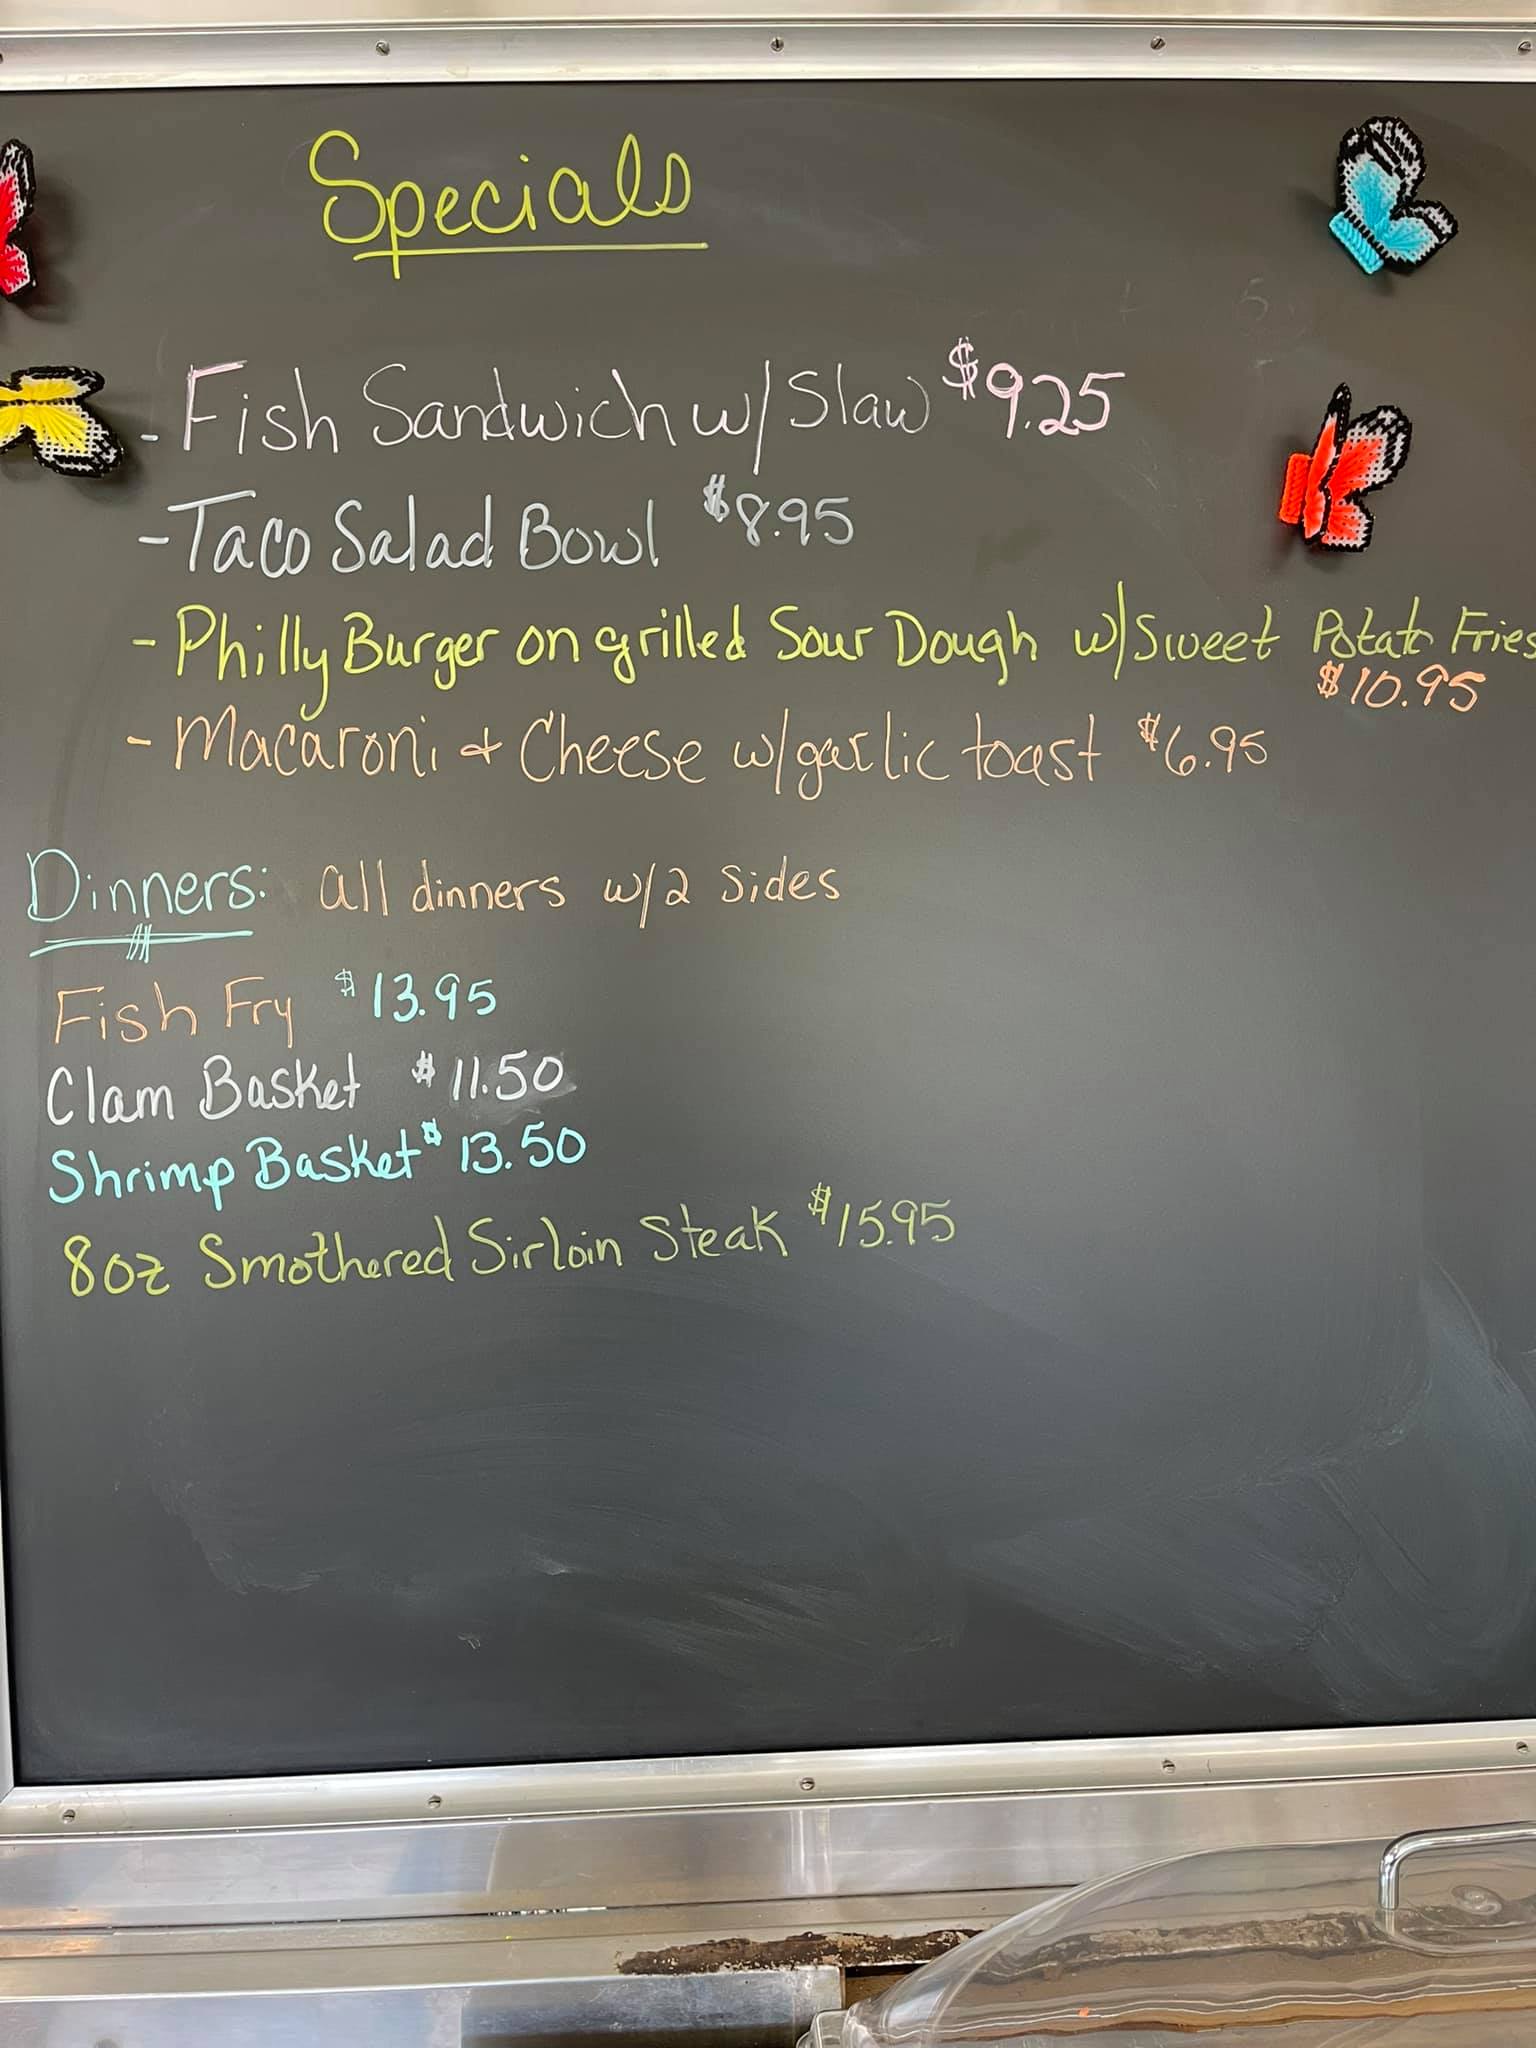 Specials
- Fish Sandwich w/ Slaw $9.25
- Taco Salad Bowl $8.95
- Philly Burger on grilled Sour Dough w/ Sweet Potato Fries
$10.95
- Macaroni + Cheese w/ garlic toast $6.95
Dinners: all dinners w/2 sides
Fish Fry $13.95
Clam Basket $11.50
Shrimp Basket $13.50
8oz Smothered Sirloin Steak $15.95